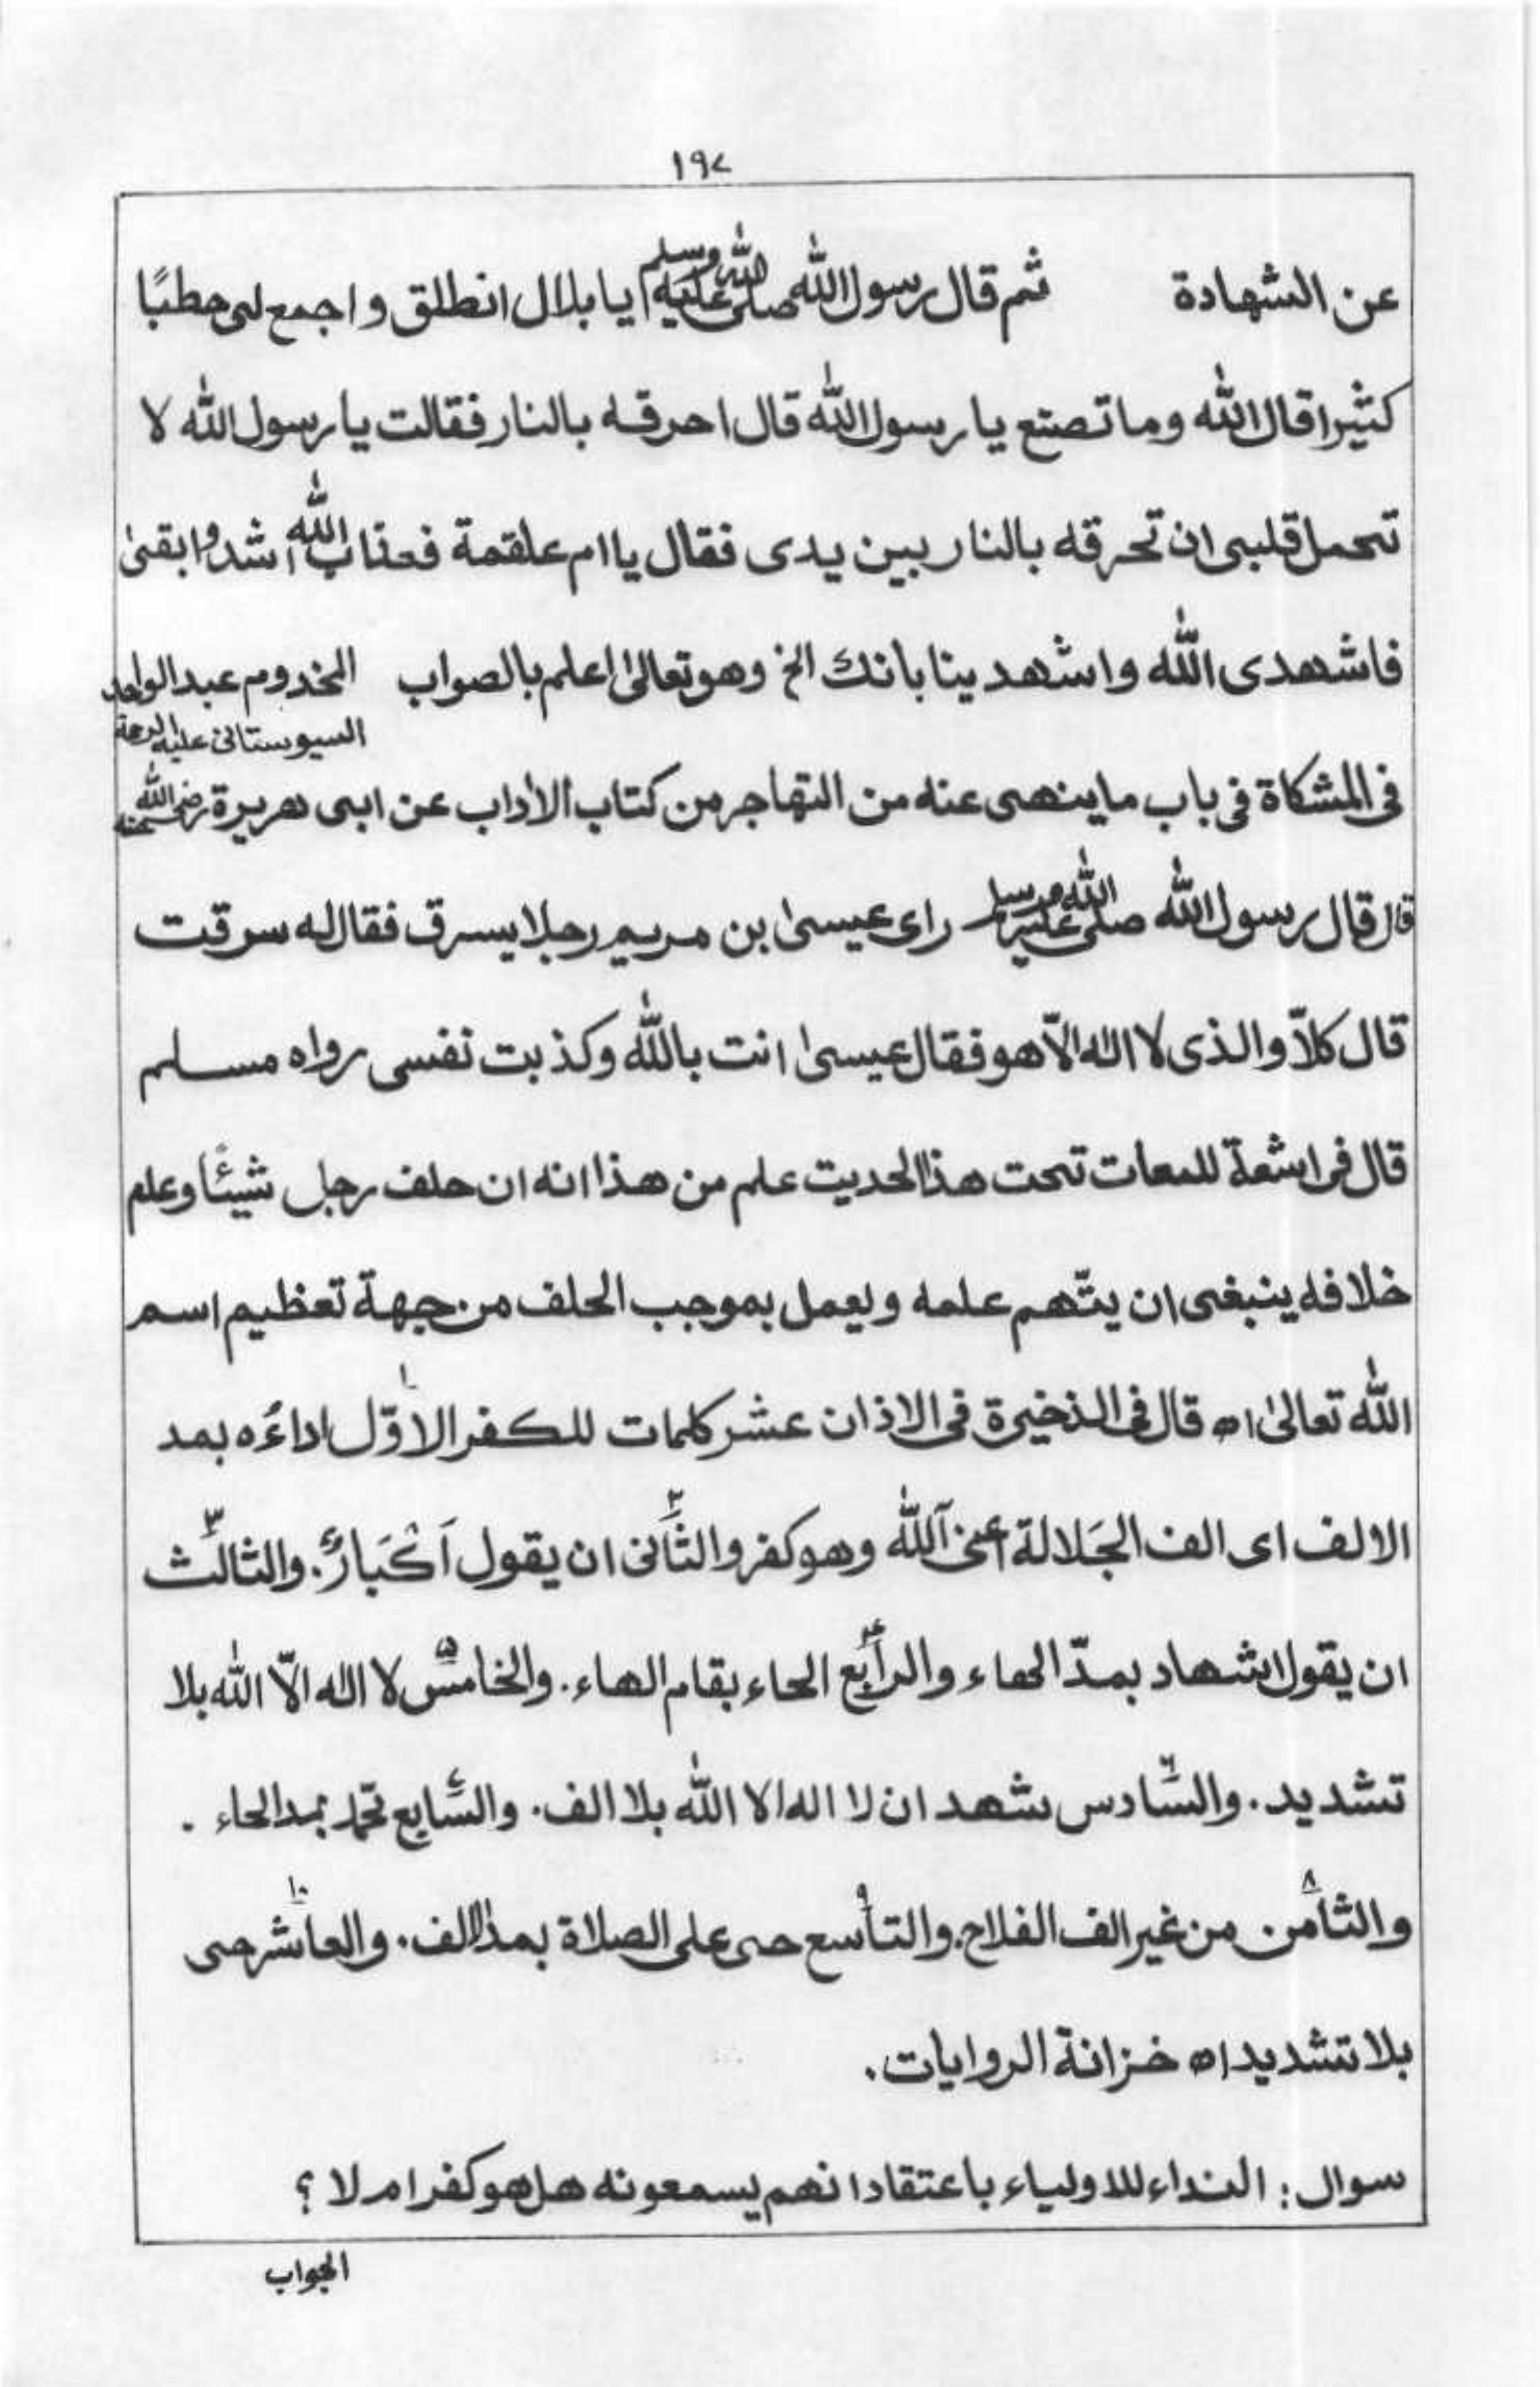 ١٩٧
عن الشهادة ثم قال رسول الله صلى الله عليه وسلم ايا بلال انطلق واجمع لى حطبًا
كثيرا قال الله وما تصنع يا رسول الله قال احرقه بالنار فقالت يا رسول الله لا
تحمل قلبى ان تحرقه بالنار بين يدى فقال يا ام علقمة فعذاب الله اشد وابقىٰ
فاشهدى الله واشهد ينا بانك الخ وهو تعالىٰ اعلم بالصواب المخدوم عبد الواحد
السيوستانى عليه الرحمة
فى المشكاة فى باب ما ينهى عنه من التهاجر من كتاب الاداب عن ابى هريرة رضى الله عنه
قال قال رسول الله صلى الله عليه وسلم راى عيسىٰ بن مريم رجلا يسرق فقال له سرقت
قال كلاّ والذى لا اله الاّ هو فقال عيسىٰ انت بالله وكذبت نفسى رواه مسلم
قال فى اشعة للمعات تحت هذا الحديث علم من هذا انه ان حلف رجل شيئًا وعلم
خلافه ينبغى ان يتّهم علمه ويعمل بموجب الحلف من جهة تعظيم اسم
الله تعالىٰ اه قال فى الذخيرة فى الاذان عشر كلمات للكفر الاوّل ١ اداءه بمد
الالف اى الف الجَلالة اعنى آلله وهو كفر والثانى ٢ ان يقول اَكْبَارُ. والثالث ٣
ان يقول اشهاد بمدّ الهاء والرابع ٤ الحاء بقام الهاء. والخامس ٥ لا اله الاّ الله بلا
تشديد. والسّادس ٦ شهد ان لا اله الا الله بلا الف. والسّابع ٧ محمد بمد الحاء.
والثامن ٨ من غير الف الفلاح. والتاسع ٩ حى على الصلاة بمد الالف. والعاشر ١٠ حى
بلا تشديد اه خزانة الروايات.
سوال: النداء للاولياء باعتقاد انهم يسمعونه هل هو كفر ام لا؟
الجواب